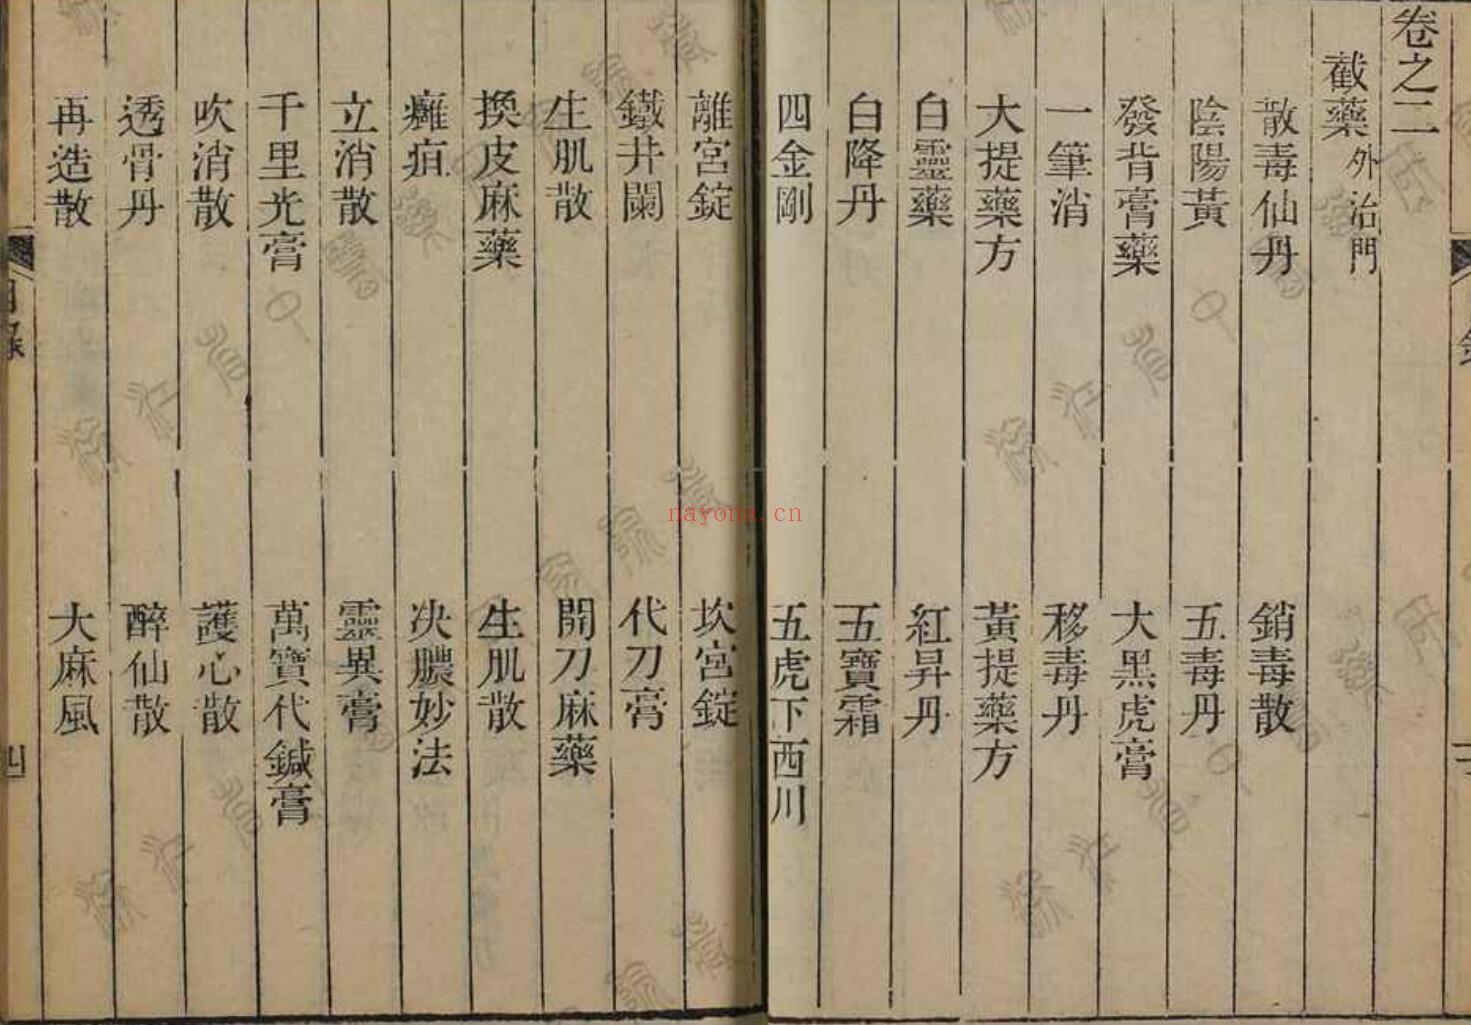 卷之二
截藥外治門
散毒仙丹 銷毒散
陰陽黃 五毒丹
發背膏藥 大黑虎膏
一筆消 移毒丹
大提藥方 黃提藥方
白靈藥 紅昇丹
白降丹 五寶霜
四金剛 五虎下西川
離宮錠 坎宮錠
鐵井闌 代刀膏
生肌散 開刀麻藥
換皮麻藥 生肌散
癱疽 决膿妙法
立消散 靈異膏
千里光膏 萬寶代鍼膏
吹消散 護心散
透骨丹 醉仙散
再造散 大麻風
四
nayona.cn